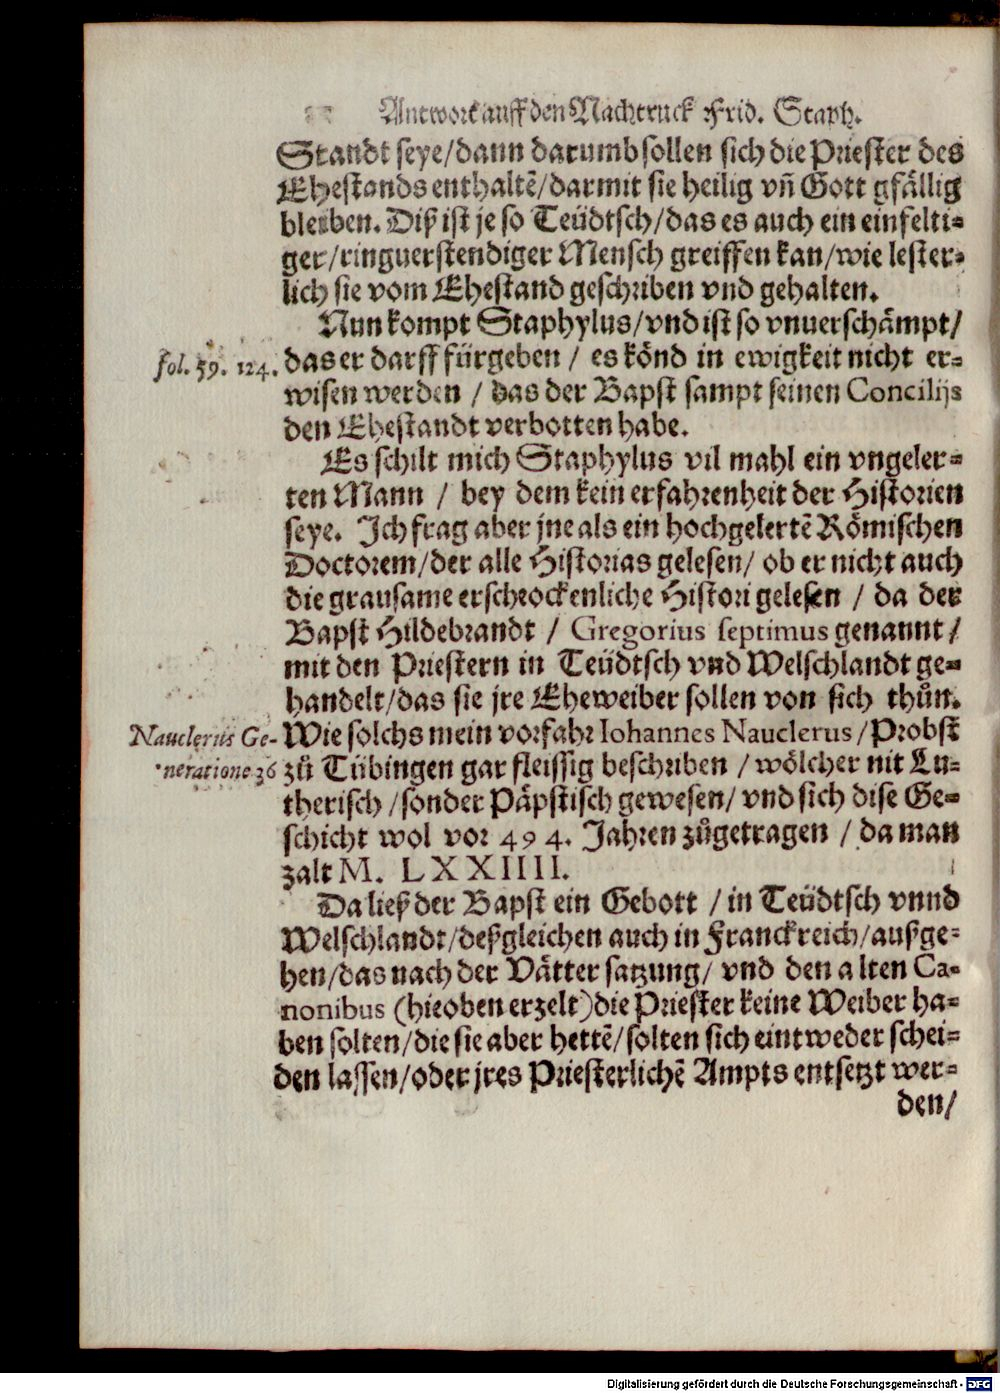 Antwort auff den Nachtruck Frid. Staph.
Standt seye/dann darumb sollen sich die Priester des
Ehestands enthaltē/darmit sie heilig vñ Gott gfällig
bleiben. Diß ist je so Teüdtsch/das es auch ein einfelti-
ger/ringuerstendiger Mensch greiffen kan/wie lester-
lich sie vom Ehestand geschriben vnd gehalten.
Nun kompt Staphylus/vnd ist so vnuerschämpt/
fol. 59. 124. das er darff fürgeben / es könd in ewigkeit nicht er-
wisen werden / das der Bapst sampt seinen Concilijs
den Ehestandt verbotten habe.
Es schilt mich Staphylus vil mahl ein vngeler-
ten Mann / bey dem kein erfahrenheit der Historien
seye. Ich frag aber jne als ein hochgelertē Römischen
Doctorem/der alle Historias gelesen/ ob er nicht auch
die grausame erschrockenliche Histori gelesen / da der
Bapst Hildebrandt / Gregorius septimus genannt/
mit den Priestern in Teüdtsch vnd Welschlandt ge-
handelt/das sie jre Eheweiber sollen von sich thůn.
Nauclerus Ge- Wie solchs mein vorfahr Iohannes Nauclerus/Probst
neratione 36 zů Tübingen gar fleissig beschriben / wölcher nit Lu-
therisch /sonder Päpstisch gewesen/ vnd sich dise Ge-
schicht wol vor 494. Jahren zůgetragen / da man
zalt M. LXXIIII.
Da ließ der Bapst ein Gebott / in Teüdtsch vnnd
Welschlandt/deßgleichen auch in Franckreich/außge-
hen/das nach der Vätter satzung/ vnd den alten Ca-
nonibus (hieoben erzelt) die Priester keine Weiber ha-
ben solten/die sie aber hettē/solten sich eintweder schei-
den lassen/oder jres Priesterlichē Ampts entsetzt wer-
den/
Digitalisierung gefördert durch die Deutsche Forschungsgemeinschaft - DFG